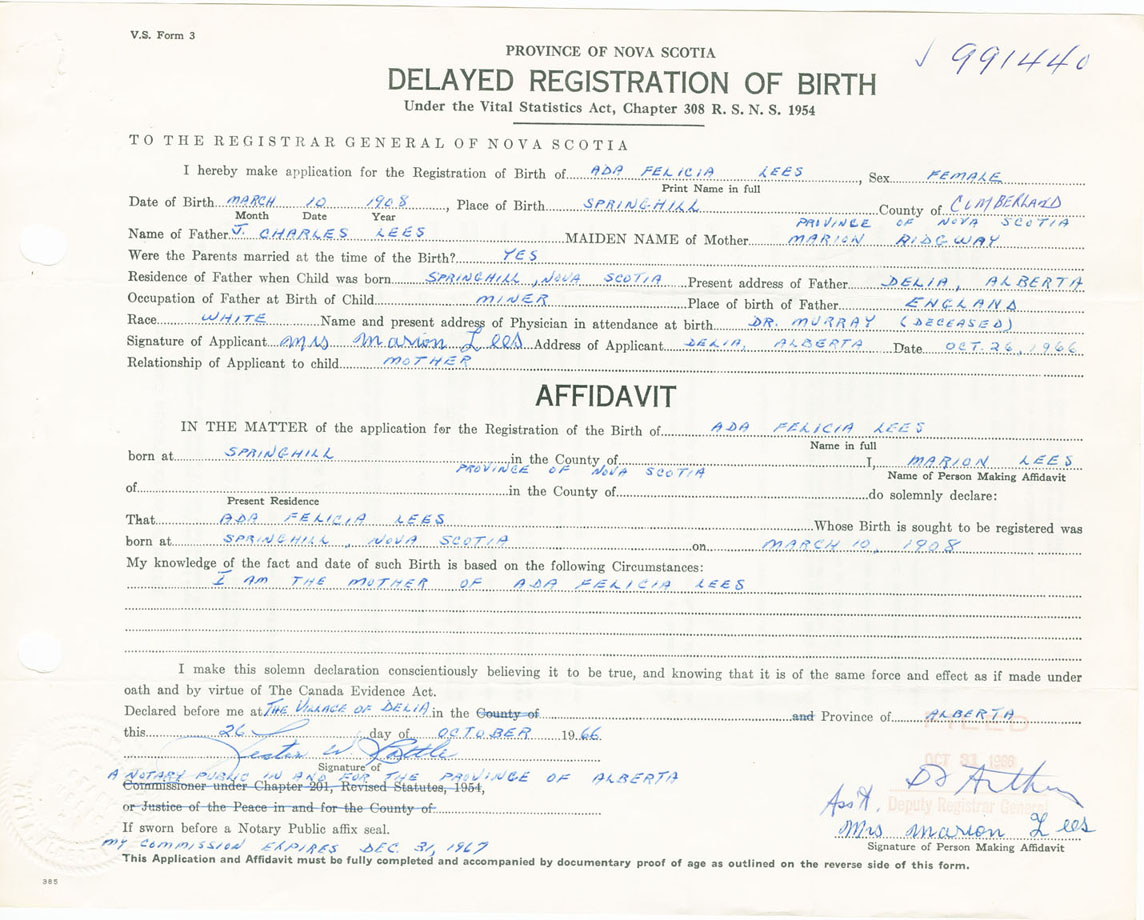 V.S. Form 3
991440
PROVINCE OF NOVA SCOTIA
DELAYED REGISTRATION OF BIRTH
Under the Vital Statistics Act, Chapter 308 R. S. N. S. 1954
TO THE REGISTRAR GENERAL OF NOVA SCOTIA
I hereby make application for the Registration of Birth of ADA FELICIA LEES, Sex FEMALE
Print Name in full
Date of Birth MARCH 10 1908, Place of Birth SPRINGHILL County of CUMBERLAND
Month Date Year PROVINCE OF NOVA SCOTIA
Name of Father J. CHARLES LEES MAIDEN NAME of Mother MARION RIDGWAY
Were the Parents married at the time of the Birth? YES
Residence of Father when Child was born SPRINGHILL, NOVA SCOTIA Present address of Father DELIA, ALBERTA
Occupation of Father at Birth of Child MINER Place of birth of Father ENGLAND
Race WHITE Name and present address of Physician in attendance at birth DR. MURRAY (DECEASED)
Signature of Applicant Mrs Marion Lees Address of Applicant DELIA, ALBERTA Date OCT. 26, 1966
Relationship of Applicant to child MOTHER
AFFIDAVIT
IN THE MATTER of the application for the Registration of the Birth of ADA FELICIA LEES
Name in full
born at SPRINGHILL in the County of I, MARION LEES
PROVINCE OF NOVA SCOTIA Name of Person Making Affidavit
of in the County of do solemnly declare:
Present Residence
That ADA FELICIA LEES Whose Birth is sought to be registered was
born at SPRINGHILL, NOVA SCOTIA on MARCH 10, 1908
My knowledge of the fact and date of such Birth is based on the following Circumstances:
I AM THE MOTHER OF ADA FELICIA LEES
I make this solemn declaration conscientiously believing it to be true, and knowing that it is of the same force and effect as if made under
oath and by virtue of The Canada Evidence Act.
Declared before me at THE VILLAGE OF DELIA in the County of and Province of ALBERTA
this 26 day of OCTOBER 1966
OCT 31 1966
Signature of
A NOTARY PUBLIC IN AND FOR THE PROVINCE OF ALBERTA
Commissioner under Chapter 201, Revised Statutes, 1954,
or Justice of the Peace in and for the County of
Ass't. Deputy Registrar General
If sworn before a Notary Public affix seal.
Mrs Marion Lees
MY COMMISSION EXPIRES DEC. 31, 1967
Signature of Person Making Affidavit
This Application and Affidavit must be fully completed and accompanied by documentary proof of age as outlined on the reverse side of this form.
385